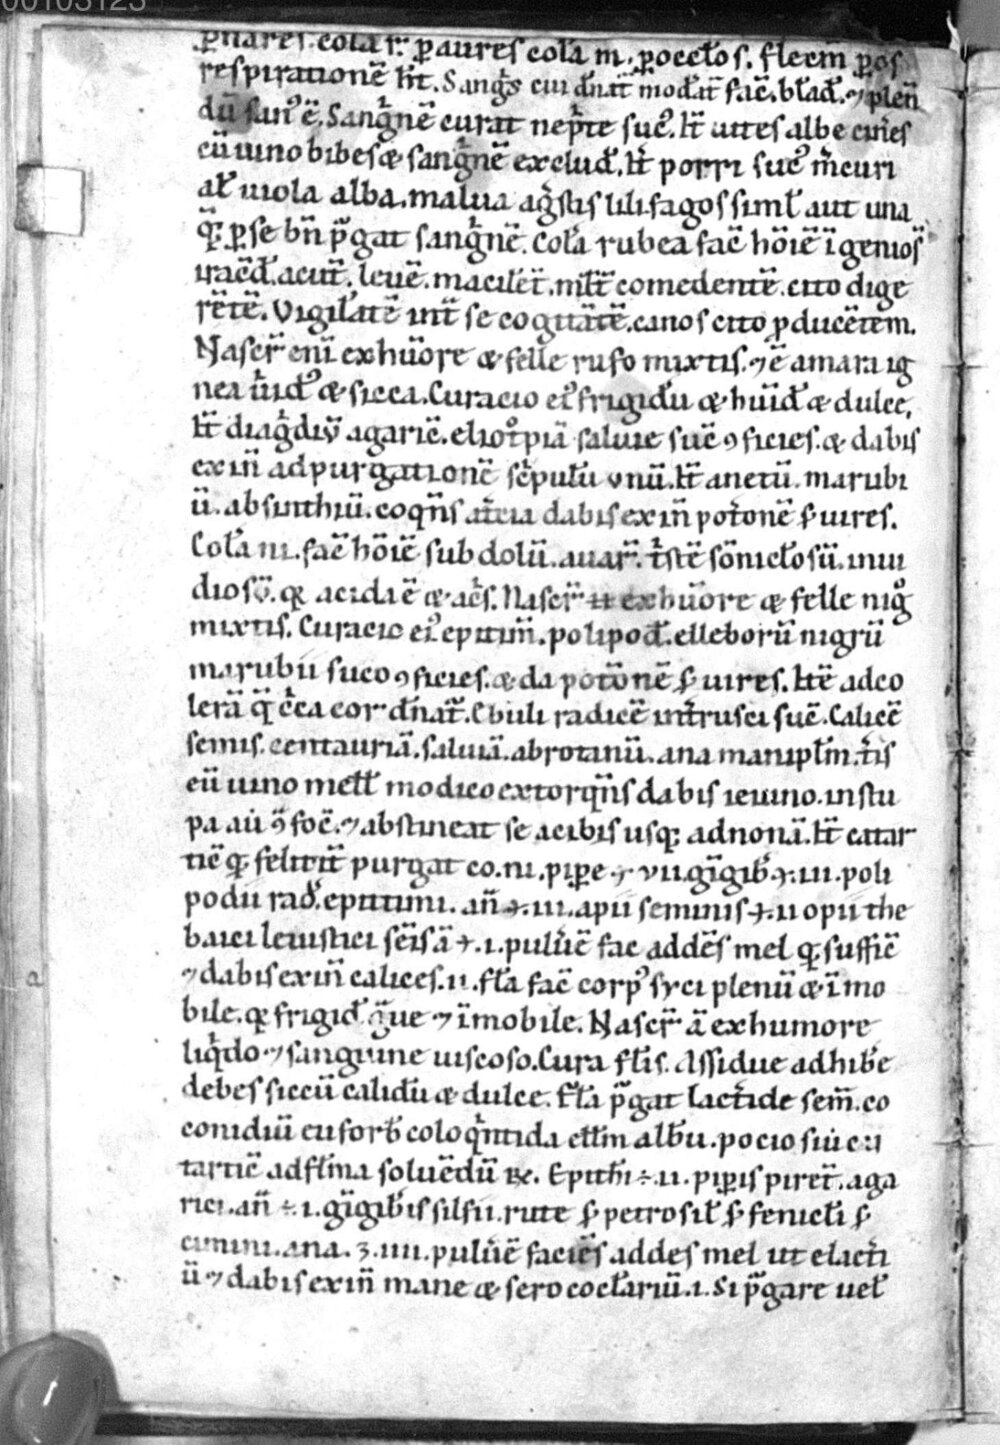 00103123
p̱nares. cola r̄. p̱ aures cola m. p̱ ocło s. flecm̄ p̱ os
respirationē hn̄t. Sangꝰs cui dn̄at̄ mod̄at̄ facē. bl̄ad̄. ⁊ plen̄
dū sanꝰ ē. Sangⁱnē curat nepⁱte sucꝰ. Iт̄ uites albe cin̄es
cū uino bibes æ sangⁱnē exclud̄. Iт̄ porri sucꝰ mⁱcuri
al̄ uiola alba. malua agⁱstis lili. fagos simł aut una
q̄ꝫ p̱ se bn̄ p̄gat sangⁱnē. Cola rubea facē hōiē īgenios̄
iracd̄. acut̄. leuē. macilēt̄. ml̄t̄ comedentē. cito dige
rētē. Vigilatē int̄ se cogitātē. canos cito p̱ducētem.
Nascr̄ eni ex hūore æ felle rufo mixtis. ⁊ ē amara ig
nea uⁱidꝰ æ sicca. Curacio eiꝰ frigidū æ hūid̄ æ dulce.
Iт̄ diagⁱdiū agaricē. eliotⁱpiā saluie sucē ꝯficies. æ dabis
exin̄ ad purgationē sc̄pulū unū. Iт̄ anetū. marubi
ū. absinthiū. coqn̄s at̄cia dabis exin̄ potⁱonē ẜ uires.
Cola ni. facē hōiē subdolū. auar̄. tⁱstē sōniclosū. inui
diosū. qꝫ acida ē æ acⁱs. Nascr̄ ex hūore æ felle nigͦ
mixtis. Curacio eiꝰ epitim̄. polipod̄. elleborū nigrū
marubii suco ꝯficies. æ da potⁱonē ẜ uires. Itē ad co
lerā q̄ cⁱca cor dn̄at̄. Ebuli radicē intrusci sucē. Calicē
semis. centauriā. saluiā. abrotanū. ana manipl̄m. tⁱis
cū uino mełł modico extorqn̄s dabis ieiuno. in stu
pa aū ꝯfoē. ⁊ abstineat se acibis usqꝫ ad nonā. Iт̄ catar
ticē qꝫ felicit̄ purgat co. ni. pip̱e ⁊ vii. gīgib̄ ⁊. iii. poli
podii rad̄. epitimi. an̄ ⁊. iii. apii seminis ⁊. ii opii the
baici leuistici sēis ā ⁊. i. puluⁱē fac addēs mel qꝫ sufficē
⁊ dabis exin̄ calices. ii. fl̄a facē corpꝰ syci plenū æ īmo
bile. qꝫ frigid̄. gⁱue ⁊ īmobile. Nascr̄ ā ex humore
liqⁱdo ⁊ sanguine uiscoso. Cura fl̄is. Assidue adhibe
debes siccū calidū æ dulce. fl̄a p̄gat lactⁱde sem̄. co
conidiū euforb̄ coloqⁱntida ełłm albū. pocio siu ca
tarticē ad fl̄ma soluēdū ℞. Epithi ÷. ii. pip̱is piret̄. aga
rici. an̄ ÷. i. gīgib̄is silfii. rute ẜ petrosil̄ ẜ fenicłi ẜ
cimini. ana. ʒ. iiii. puluⁱē faciēs addes mel ut elactⁱi
ū ⁊ dabis exin̄ mane æ sero coclariū. i. Si p̄gare uel̄